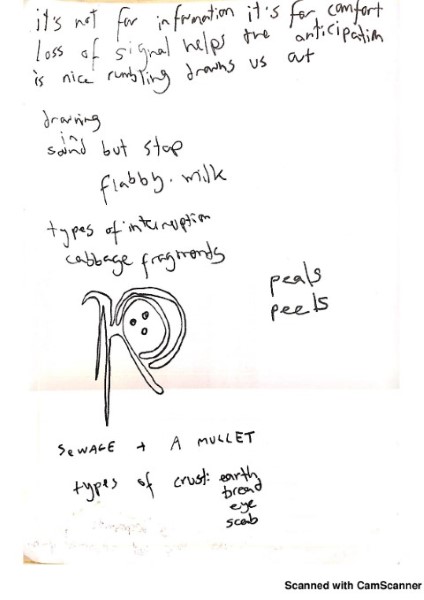 it's not for information it's for comfort
loss of signal helps the anticipation
is nice rumbling drowns us out
drowning
in
sound but stop
flabby. milk
types of interruption
cabbage fragments
peals
peels
SEWAGE + A MULLET
types of crust: earth
bread
eye
scab
Scanned with CamScanner